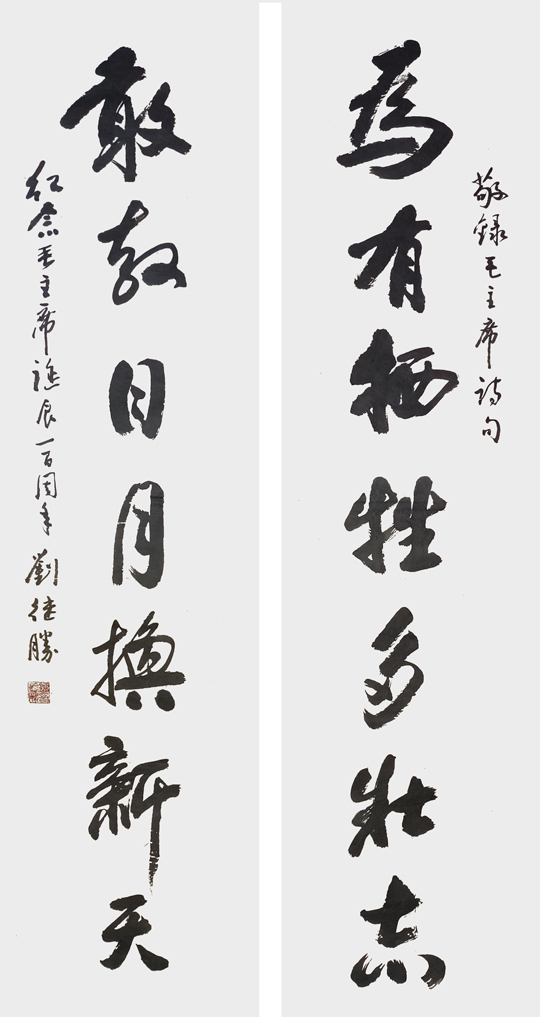 敬録毛主席诗句
為有牺牲多壮志
敢教日月换新天
纪念毛主席誕辰一百周年 劉 勝